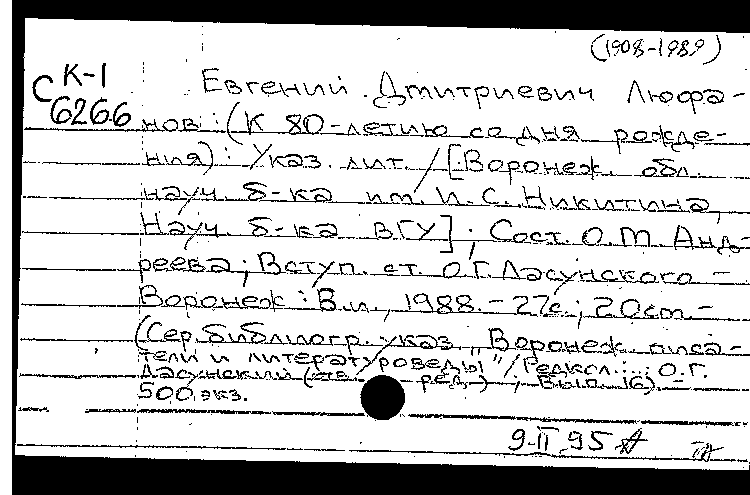 (1908-1989)
С К-1
6266
Евгений Дмитриевич Люфа-
нов: (К 80-летию со дня рожде-
ния): Указ. лит. / [Воронеж. обл.
науч. б-ка им. И. С. Никитина,
Науч. б-ка ВГУ]; Сост. О. М. Анд-
реева; Вступ. ст. О. Г. Ласунского -
Воронеж: Б. и., 1988. - 27 с.; 20 см. -
(Сер. библиогр. указ. „Воронеж. писа-
тели и литературоведы" / Редкол.: .. О. Г.
Ласунский (отв. ред.) ; Вып. 16). -
500 экз.
9-II.95